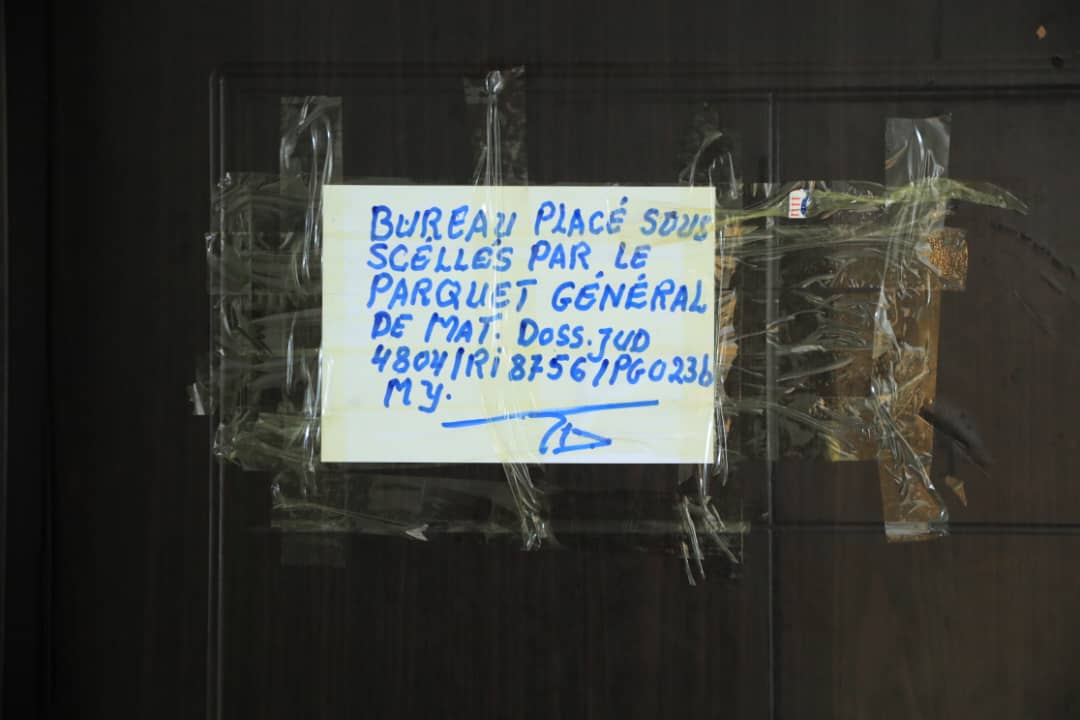 BUREAU PLACÉ SOUS
SCELLÉS PAR LE
PARQUET GÉNÉRAL
DE MAT. DOSS. JUD
4804/Ri 8756/PG023b
MY.